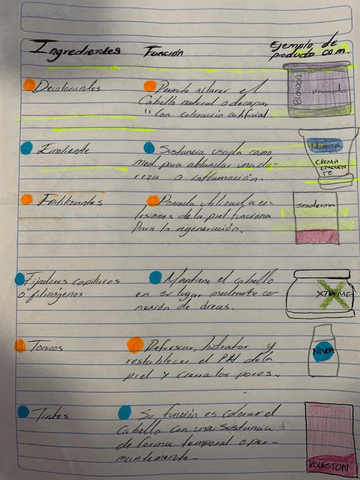 Ingredientes Función Ejemplo de
producto com.
Decolorantes
Permite aclarar el
cabello natural o decapar
con coloración artificial.
Blondor
Emoliente
Sustancia usada como
med. para ablandar una du-
reza o inflamación.
Nivea
CREMA
EMOLIEN
TE
Epitelizantes
Pomada utilizada en
lesiones de la piel funciona
Para la regeneración.
Fijadores capilares
o filmógenos
Mantiene el cabello
en su lugar mediante co-
nexión de áreas.
XTREME
Tonicos
Refrescar, hidratar y
restablecer el PH de la
piel y cierra los poros.
NIVEA
Tintes
Su función es colorar el
cabello con una sustancia
de forma temporal o per-
manente.
KOLESTON